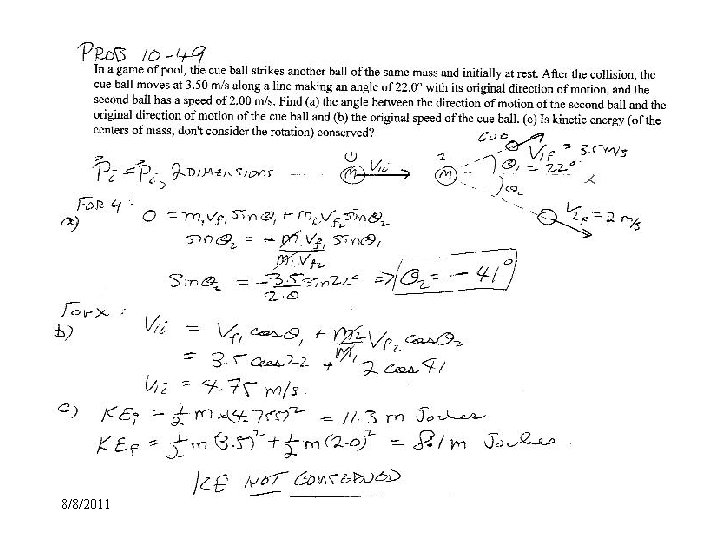 PROB 10-49
In a game of pool, the cue ball strikes another ball of the same mass and initially at rest. After the collision, the
cue ball moves at 3.50 m/s along a line making an angle of 22.0° with its original direction of motion, and the
second ball has a speed of 2.00 m/s. Find (a) the angle between the direction of motion of the second ball and the
original direction of motion of the cue ball and (b) the original speed of the cue ball. (c) Is kinetic energy (of the
centers of mass, don't consider the rotation) conserved?
CUE
Pi = Pi, 2 DIMENSIONS ---- 1 M V1i 2 M θ1 = 22° V1F = 3.5 m/s
θ2
V2F = 2 m/s
FOR Y:
a) 0 = m1 Vf1 sinθ1 + m2 Vf2 sinθ2
sinθ2 = - m1 Vf1 sinθ1
m1 Vf2
sinθ2 = -3.5 sin22° => θ2 = -41°
2.0
For x:
b) V1i = Vf1 cosθ1 + m2 Vf2 cosθ2
m1
= 3.5 cos 22 + 2 cos 41
V1i = 4.75 m/s.
c) KEi = 1/2 m (4.755)² = 11.3 m Joules
KEf = 1/2 m (3.5)² + 1/2 m (2.0)² = 8.1 m Joules.
KE NOT CONSERVED
8/8/2011